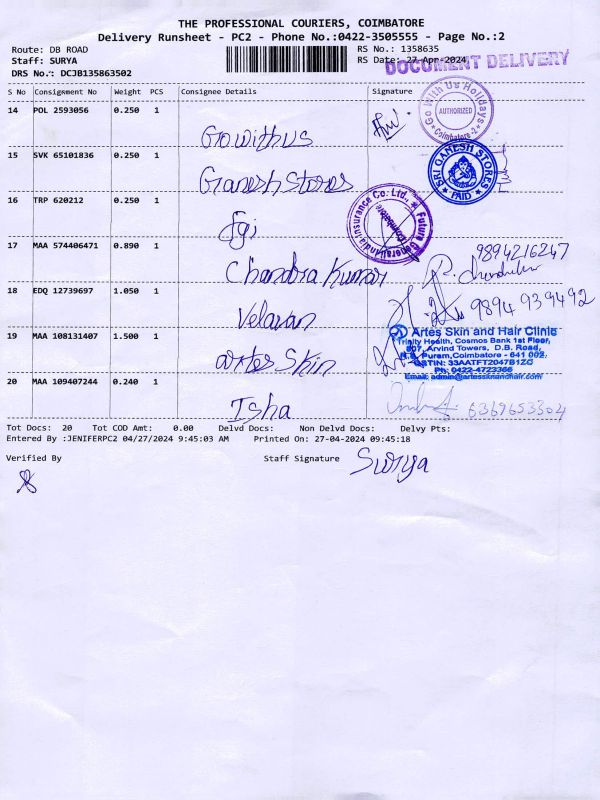 THE PROFESSIONAL COURIERS, COIMBATORE
Delivery Runsheet - PC2 - Phone No.:0422-3505555 - Page No.:2
Route: DB ROAD
RS No.: 1358635
Staff: SURYA
RS Date: 27-Apr-2024
DOCUMENT DELIVERY
DRS No.: DCJB135863502
S No Consignment No Weight PCS Consignee Details Signature
14 POL 2593056 0.250 1
Gowithus
Go With Us Holidays
AUTHORIZED
Coimbatore-2
15 SVK 65101836 0.250 1
Ganesh Stores
SRI GANESH STORES
PAID
16 TRP 620212 0.250 1
fgi
Future Generali India Insurance Co. Ltd.,
Coimbatore
17 MAA 574406471 0.890 1
Chandra Kumar
9894216247
18 EDQ 12739697 1.050 1
Velavan
9894 939492
19 MAA 108131407 1.500 1
artes Skin
Artes Skin and Hair Clinic
Trinity Health, Cosmos Bank 1st Floor,
Arvind Towers, D.B. Road,
R.S. Puram, Coimbatore - 641 002.
GSTIN: 33AATFT2047B1ZC
Ph: 0422-4723366
Email: admin@artesskinandhair.com
20 MAA 109407244 0.240 1
Isha
6369653304
Tot Docs: 20 Tot COD Amt: 0.00 Delvd Docs: Non Delvd Docs: Delvy Pts:
Entered By :JENIFERPC2 04/27/2024 9:45:03 AM Printed On: 27-04-2024 09:45:18
Verified By
Staff Signature
Surya